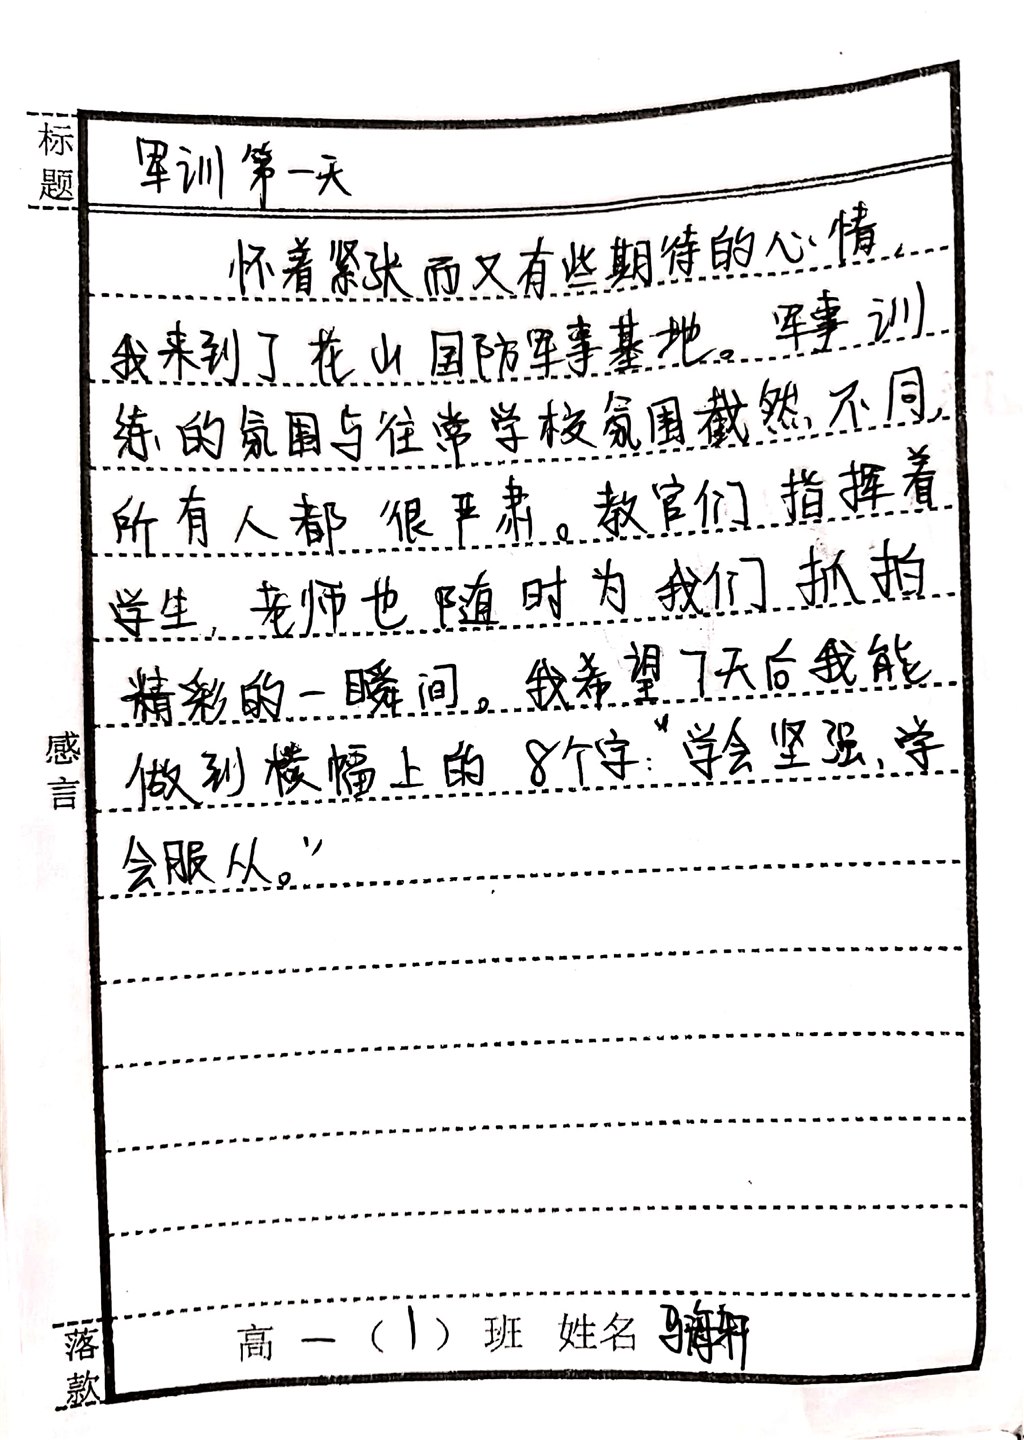 标题
军训第一天
怀着紧张而又有些期待的心情,
我来到了花山国防军事基地。军事训
练的氛围与往常学校氛围截然不同,
所有人都很严肃。教官们指挥着
学生,老师也随时为我们抓拍
精彩的一瞬间。我希望7天后我能
做到横幅上的8个字:“学会坚强、学
会服从。”
感言
落款
高一(1)班 姓名 马海轩